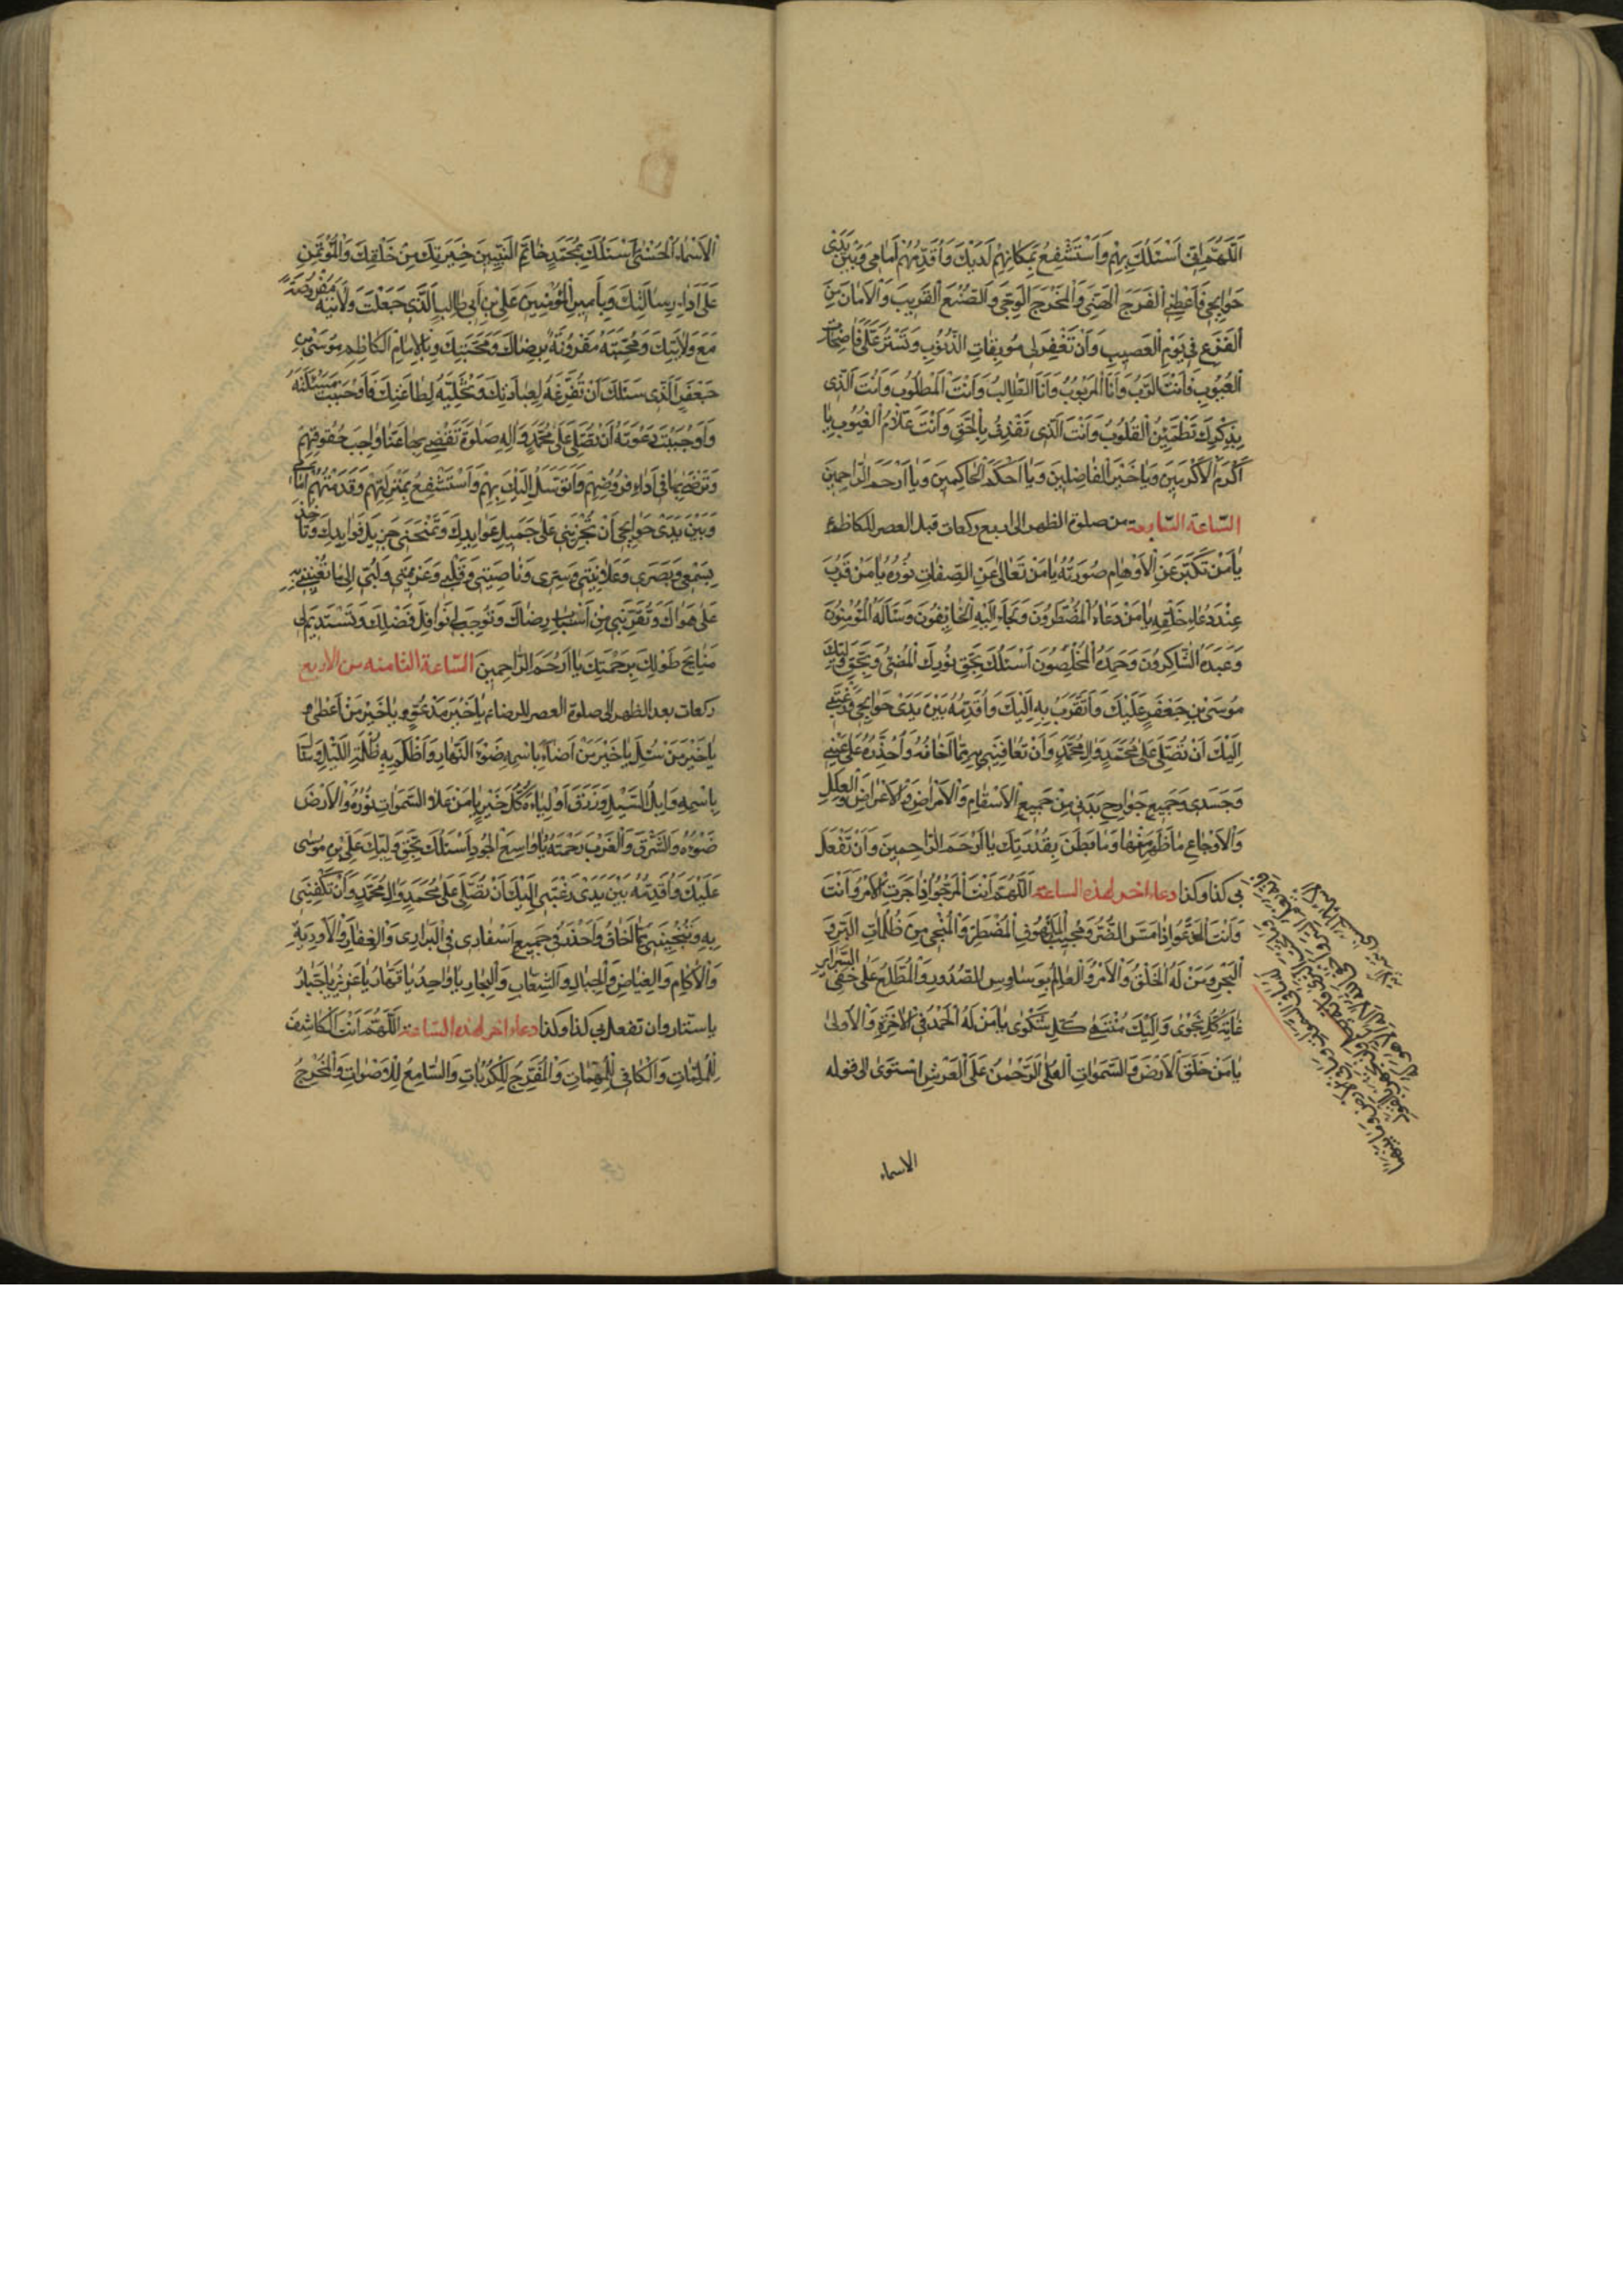 اَللّٰهُمَّ اِنّى اَسْئَلُكَ بِهِمْ وَاَسْتَشْفِعُ بِمَكانِهِمْ لَدَيْكَ وَاُقَدِّمُهُمْ اَمامى وَبَيْنَ يَدَىْ
حَوٰائِجى فَاَعْطِنِى الْفَرَجَ الْهَنِىَّ وَالْمَخْرَجَ الْوَحِىَّ وَالصُّنْعَ الْقَريبَ وَالْاَمانَ مِنَ
الْفَزَعِ فى يَوْمِ الْعَصيبِ وَاَنْ تَغْفِرَ لى مُوبِقاتِ الذُّنُوبِ وَتَسْتُرَ عَلَىَّ فاضِحاتِ
الْعُيُوبِ فَاَنْتَ الرَّبُّ وَاَنَا الْمَرْبُوبُ وَاَنَا الطّالِبُ وَاَنْتَ الْمَطْلُوبُ وَاَنْتَ الَّذى
بِذِكْرِكَ تَطْمَئِنُّ الْقُلُوبُ وَاَنْتَ الَّذى تَقْذِفُ بِالْحَقِّ وَاَنْتَ عَلّامُ الْغُيُوبِ يا
اَكْرَمَ الْاَكْرَمينَ وَيا خَيْرَ الْفاصِلينَ وَيا اَحْكَمَ الْحاكِمينَ وَيا اَرْحَمَ الرّاحِمينَ
السّاعة السّابعة من صلوة الظهر الى اربع ركعات قبل العصر للكاظم ع
يا مَنْ تَكَبَّرَ عَنِ الْاَوْهامِ صُورَتُهُ يا مَنْ تَعالىٰ عَنِ الصِّفاتِ نُورُهُ يا مَنْ قَرُبَ
عِنْدَ دُعاءِ خَلْقِهِ يا مَنْ دَعاهُ الْمُضْطَرُّونَ وَلَجَاَ اِلَيْهِ الْخائِفُونَ وَسَئَلَهُ الْمُؤْمِنُونَ
وَعَبَدَهُ الشّاكِرُونَ وَحَمِدَهُ الْمُخْلِصُونَ اَسْئَلُكَ بِحَقِّ نُورِكَ الْمُضِىءِ وَبِحَقِّ وَلِيِّكَ
مُوسَى بْنِ جَعْفَرٍ عَلَيْكَ وَاَتَقَرَّبُ بِهِ اِلَيْكَ وَاُقَدِّمُهُ بَيْنَ يَدَىْ حَوٰائِجى وَرَغْبَتى
اِلَيْكَ اَنْ تُصَلِّىَ عَلىٰ مُحَمَّدٍ وَاٰلِ مُحَمَّدٍ وَاَنْ تُعافِيَنى بِهِ مِمّا اَخافُهُ وَاَحْذَرُهُ عَلىٰ عَيْنى
وَجَسَدى وَجَميعِ جَوارِحِ بَدَنى مِنْ جَميعِ الْاَسْقامِ وَالْاَمْراضِ وَالْاَعْراضِ وَالْعِلَلِ
وَالْاَوْجاعِ ما ظَهَرَ مِنْها وَما بَطَنَ بِقُدْرَتِكَ يا اَرْحَمَ الرّاحِمينَ وَاَنْ تَفْعَلَ
بى كذا وكذا دعاء اخر لهذه الساعة اَللّٰهُمَّ اَنْتَ الْمَرْجُوُّ اِذا حَزَبَ الْاَمْرُ وَاَنْتَ
وَاَنْتَ الْمَدْعُوُّ اِذا مَسَّ الضُّرُّ وَمُجيبُ الْمَلْهُوفِ الْمُضْطَرِّ وَالْمُنْجى مِنْ ظُلُماتِ الْبَرِّ وَ
الْبَحْرِ وَمَنْ لَهُ الْخَلْقُ وَالْاَمْرُ وَالْعالِمُ بِوَساوِسِ الصُّدُورِ وَالْمُطَّلِعُ عَلىٰ خَفِىِّ السَّرائِرِ
غايَةُ كُلِّ نَجْوىٰ وَاِلَيْكَ مُنْتَهىٰ كُلِّ شَكْوىٰ يا مَنْ لَهُ الْحَمْدُ فِى الْاٰخِرَةِ وَالْاُولىٰ
يا مَنْ خَلَقَ الْاَرْضَ وَالسَّمٰوٰاتِ الْعُلَى الرَّحْمٰنُ عَلَى الْعَرْشِ اسْتَوىٰ الى قوله
الاسماء
الْاَسْماءُ الْحُسْنىٰ اَسْئَلُكَ بِمُحَمَّدٍ خاتَمِ النَّبِيّينَ خِيَرَتِكَ مِنْ خَلْقِكَ وَالْمُؤْتَمَنِ
عَلىٰ اَداءِ رِسالَتِكَ وَبِاَميرِ الْمُؤْمِنينَ عَلِىِّ بْنِ اَبى طالِبٍ الَّذى جَعَلْتَ وَلايَتَهُ مَفْرُوضَةً
مَعَ وَلايَتِكَ وَمَحَبَّتَهُ مَقْرُونَةً بِرِضاكَ وَمَحَبَّتِكَ وَبِالْاِمامِ الْكاظِمِ مُوسَى بْنِ
جَعْفَرٍ الَّذى سَئَلَكَ اَنْ تُفَرِّغَهُ لِعِبادَتِكَ وَتُخَلِّيَهُ لِطاعَتِكَ فَاَوْجَبْتَ مَسْئَلَتَهُ
وَاَوْجَبْتَ دَعْوَتَهُ اَنْ تُصَلِّىَ عَلىٰ مُحَمَّدٍ وَاٰلِهِ صَلوٰةً تَقْضى بِها عَنّا واجِبَ حُقُوقِهِمْ
وَتَرْضىٰ بِها فى اَداءِ فُرُوضِهِمْ وَاَتَوَسَّلُ اِلَيْكَ بِهِمْ وَاَسْتَشْفِعُ بِمَنْزِلَتِهِمْ وَقَدَّمْتُهُمْ اَمامى
وَبَيْنَ يَدَىْ حَوٰائِجى اَنْ تُجْرِيَنى عَلىٰ جَميلِ عَوائِدِكَ وَتَمْنَحَنى جَزيلَ فَوائِدِكَ وَتَأْخُذَ
بِسَمْعى وَبَصَرى وَعَلانِيَتى وَسِرّى وَناصِيَتى وَقَلْبى وَعَزيمَتى وَلُبّى اِلىٰ ما تُعينُنى بِهِ
عَلىٰ هَواكَ وَتُقَرِّبُنى مِنْ اَسْبابِ رِضاكَ وَتُوجِبُ لى نَوافِلَ فَضْلِكَ وَتَسْتَديمُ لى
مَنائِحَ طَوْلِكَ بِرَحْمَتِكَ يا اَرْحَمَ الرّاحِمينَ السّاعة الثامنه من الاربع
ركعات بعد الظهر الى صلوة العصر للرضا ع يا خَيْرَ مَدْعُوٍّ وَيا خَيْرَ مَنْ اَعْطىٰ وَ
يا خَيْرَ مَنْ سُئِلَ يا خَيْرَ مَنْ اَضاءَ بِاسْمِهِ ضَوْءُ النَّهارِ وَاَظْلَمَ بِهِ ظُلْمَةُ اللَّيْلِ وَسالَ
بِاسْمِهِ وابِلُ السَّيْلِ وَرَزَقَ اَوْلِياءَهُ كُلَّ خَيْرٍ يا مَنْ عَلَا السَّمٰواتِ نُورُهُ وَالْاَرْضَ
ضَوْءُهُ وَالشَّرْقَ وَالْغَرْبَ رَحْمَتُهُ يا واسِعَ الْجُودِ اَسْئَلُكَ بِحَقِّ وَلِيِّكَ عَلِىِّ بْنِ مُوسىٰ
عَلَيْكَ وَاُقَدِّمُهُ بَيْنَ يَدَىْ رَغْبَتى اِلَيْكَ اَنْ تُصَلِّىَ عَلىٰ مُحَمَّدٍ وَاٰلِ مُحَمَّدٍ وَاَنْ تَكْفِيَنى
بِهِ وَتُنْجِيَنى مِمّا اَخافُ وَاَحْذَرُ فى جَميعِ اَسْفارى فِى الْبَرارى وَالْقِفارِ وَالْاَوْدِيَةِ
وَالْاٰكامِ وَالْغِياضِ وَالْجِبالِ وَالشِّعابِ وَالْبِحارِ يا واحِدُ يا قَهّارُ يا عَزيزُ يا جَبّارُ
يا ستّار وان تفعل بى كذا وكذا دعاء اخر لهذه السّاعة اَللّٰهُمَّ اَنْتَ الْكاشِفُ
لِلْمُلِمّاتِ وَالْكافى لِلْمُهِمّاتِ وَالْمُفَرِّجُ لِلْكُرُباتِ وَالسّامِعُ لِلْاَصْواتِ وَالْمُخْرِجُ